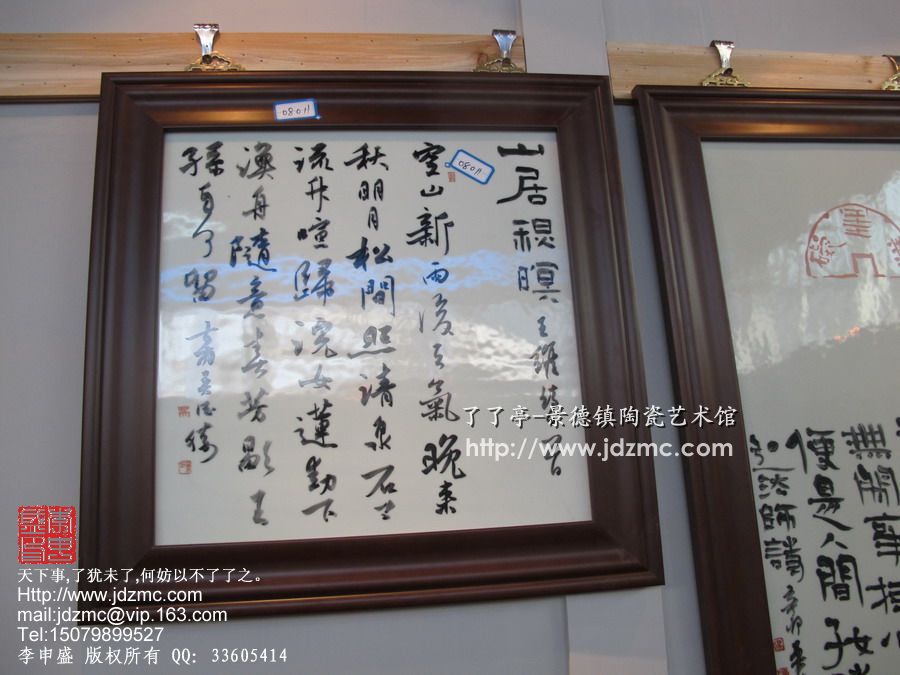 08011
08011
山居秋暝 王維詩一首
空山新雨後天氣晚来
秋明月松間照清泉石上
流竹喧歸浣女蓮動下
漁舟隨意春芳歇王
孫自可留
無閑事掛心
便是人間好時
了了亭-景德镇陶瓷艺术馆
http://www.jdzmc.com
天下事,了犹未了,何妨以不了了之。
Http://www.jdzmc.com
mail:jdzmc@vip.163.com
Tel:15079899527
李申盛 版权所有 QQ: 33605414